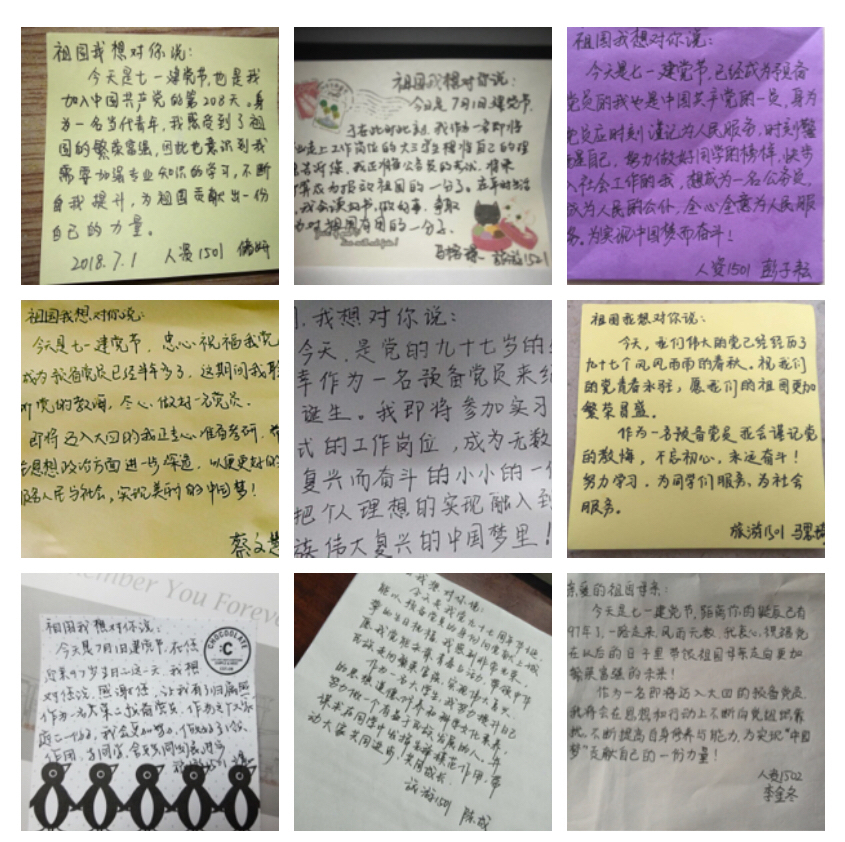 祖国我想对你说：
今天是七一建党节，也是我
加入中国共产党的第208天。身
为一名当代青年，我感受到了祖
国的繁荣富强，因此也意识到我
需要加强专业知识的学习，不断
自我提升，为祖国贡献出一份
自己的力量。
2018.7.1 人资1501
祖国我想对你说：
今日是7月1日,建党节.
于在此时此刻，我作为一名即将
走上工作岗位的大三学生理将自己的理
我正准备公务员的考试，将来
报效祖国的一分子。在平时生活
我会读好书，做好事，争取
为对祖国有用的一分子.
旅游1521
祖国我想对你说：
今天是七一建党节，已经成为预备
党员的我也是中国共产党的一员，身为
党员应时刻谨记为人民服务，时刻警
是自己，努力做好同学的榜样，快步
入社会工作的我，想成为一名公务员，
成为人民的公仆，全心全意为人民服
务。为实现中国梦而奋斗！
人资1501 彭子耘
祖国我想对你说：
今天是七一建党节，忠心祝福我党
成为预备党员已经半年多了，这期间我聆
听党的教诲，尽心做好一名党员.
即将迈入大四的我正专心准备考研，希
思想政治方面进一步深造，以便更好的
服务人民与社会，实现美丽的中国梦！
蔡文慧
,我想对你说：
今天，是党的九十七岁的生
幸作为一名预备党员来给
诞生。我即将参加实习
式的工作岗位，成为无数
复兴而奋斗的小小的一份
把个人理想的实现融入到
族伟大复兴的中国梦里！
祖国我想对你说：
今天，我们伟大的党已经经历了
九十七个风风雨雨的春秋。祝我们
的党青春永驻，愿我们的祖国更加
繁荣昌盛。
作为一名预备党员我会谨记党
的教悔，不忘初心，永远奋斗！
努力学习，为同学们服务，为社会
服务。
旅游1501
Remember You Forever
祖国我想对你说.
今天是7月1日建党节.在你
97岁生日这一天，我想
对你说，感谢你，让我有了归属感.
作为一名大第二预备党员，作为这个大家
庭
CHOCOOLATE
C
我想对你说：
今天是我党九十七周年华诞，
能以预备党员的身份向党献上诚
挚的生日祝福，我感到非常光荣。
愿我党能永葆青春与活力，带领中华
民族走向繁荣富强，实现伟大复兴。
作为一名大学生，我努力提升自己
的思想道德修养和科学文化素养，
努力做一个有益于民族发展的人。并
谋求在同学中发挥先锋模范作用，带
动大家共同进步，共同成长.
旅游1501 陈成
亲爱的祖国母亲：
今天是七一建党节，距离你的诞辰已有
97年了，一路走来，风雨无数，我衷心祝愿党
在以后的日子里带领祖国母亲走向更加
繁荣富强的未来！
作为一名即将迈入大四的预备党员
我将会在思想和行动上不断向党组织靠
拢，不断提高自身修养与能力，为实现“中国
梦”贡献自己的一份力量！
人资1502
李金冬